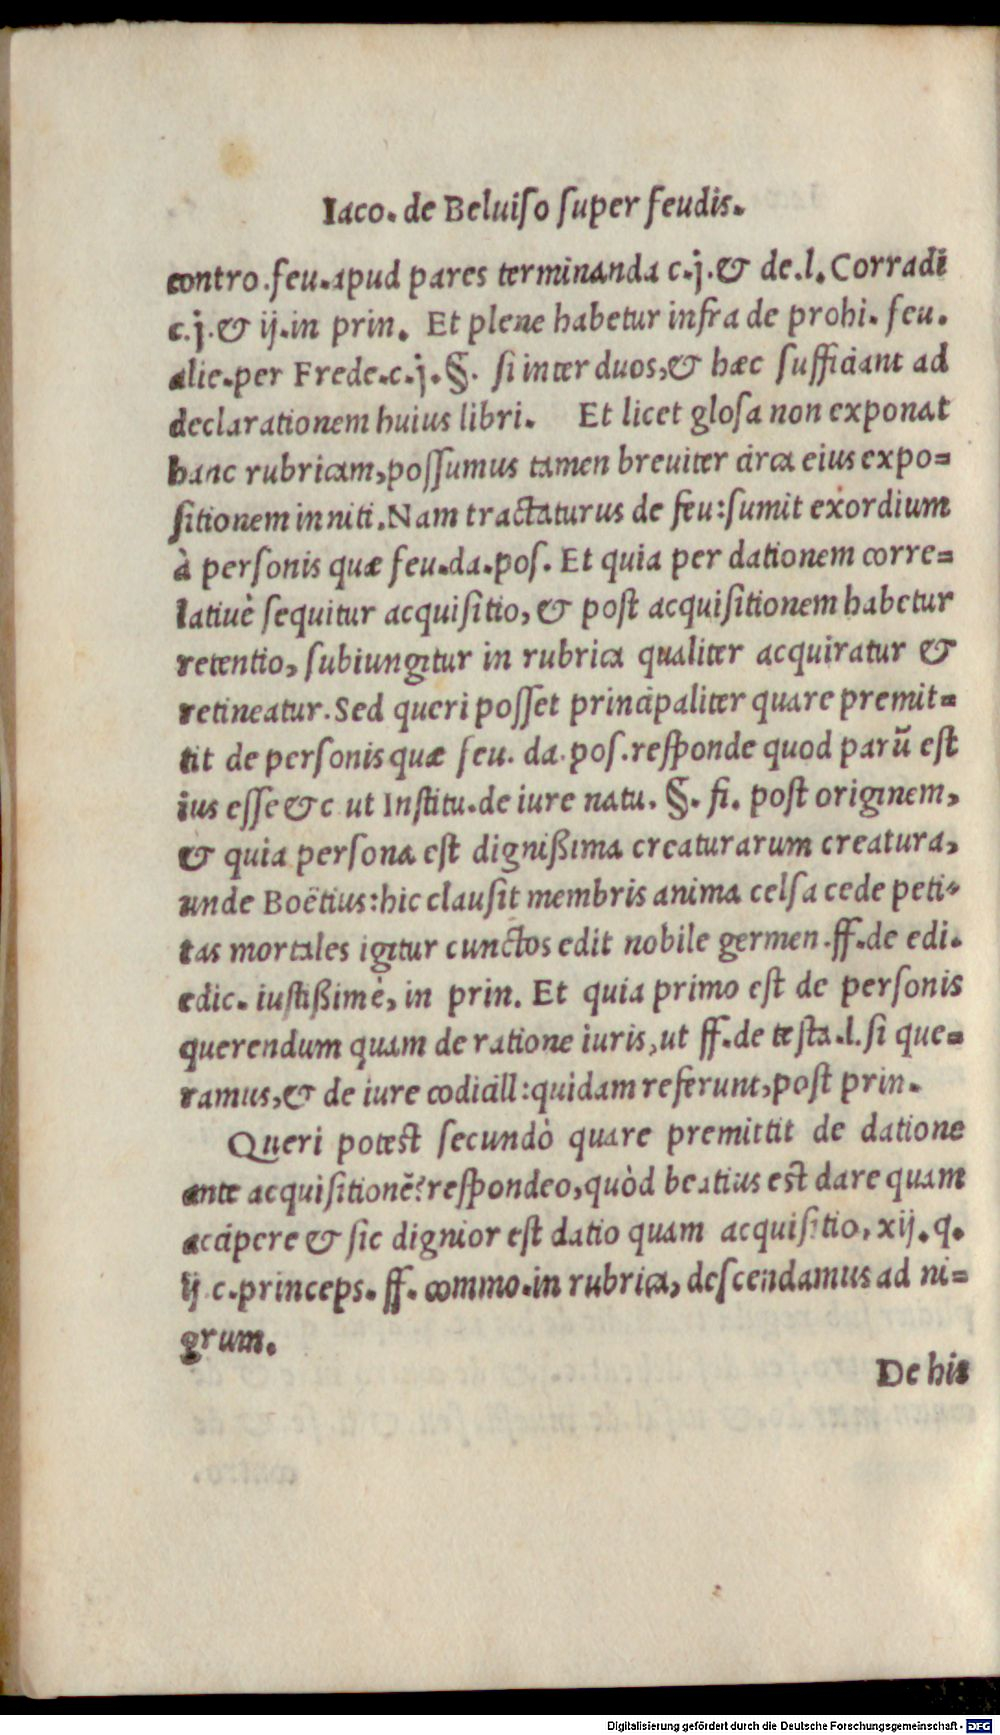 Iaco. de Beluiſo ſuper feudis.
contro.feu.apud pares terminanda c.j.& de.l.Corradi
c.j.& ij.in prin. Et plene habetur infra de prohi. feu.
alie.per Frede.c.j.§. ſi inter duos,& hæc ſufficiant ad
declarationem huius libri. Et licet gloſa non exponat
hanc rubricam,poſſumus tamen breuiter circa eius expo=
ſitionem inniti.Nam tractaturus de feu:ſumit exordium
à perſonis quæ feu.da.poſ. Et quia per dationem corre=
latiuè ſequitur acquiſitio, & poſt acquiſitionem habetur
retentio, ſubiungitur in rubrica qualiter acquiratur &
retineatur.Sed queri poſſet principaliter quare premit=
tit de perſonis quæ feu. da.poſ.reſponde quod parũ eſt
ius eſſe &c ut Inſtitu.de iure natu. §. fi. poſt originem,
& quia perſona eſt dignißima creaturarum creatura,
unde Boëtius:hic clauſit membris anima celſa cede peti=
tas mortales igitur cunctos edit nobile germen.ff.de edi.
edic. iuſtißimè, in prin. Et quia primo eſt de perſonis
querendum quam de ratione iuris,ut ff.de teſta.l.ſi que=
ramus,& de iure codicill:quidam referunt,poſt prin.
Queri poteſt ſecundò quare premittit de datione
ante acquiſitionẽ?reſpondeo,quòd beatius eſt dare quam
accipere & ſic dignior eſt datio quam acquiſitio, xij. q.
ij c.princeps. ff. commo.in rubrica, deſcendamus ad ni=
grum.
De his
Digitalisierung gefördert durch die Deutsche Forschungsgemeinschaft - DFG